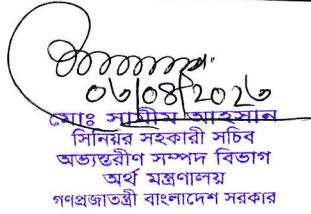 ০৬/০৪/২০২৬
মোঃ সামীম আহসান
সিনিয়র সহকারী সচিব
অভ্যন্তরীণ সম্পদ বিভাগ
অর্থ মন্ত্রণালয়
গণপ্রজাতন্ত্রী বাংলাদেশ সরকার